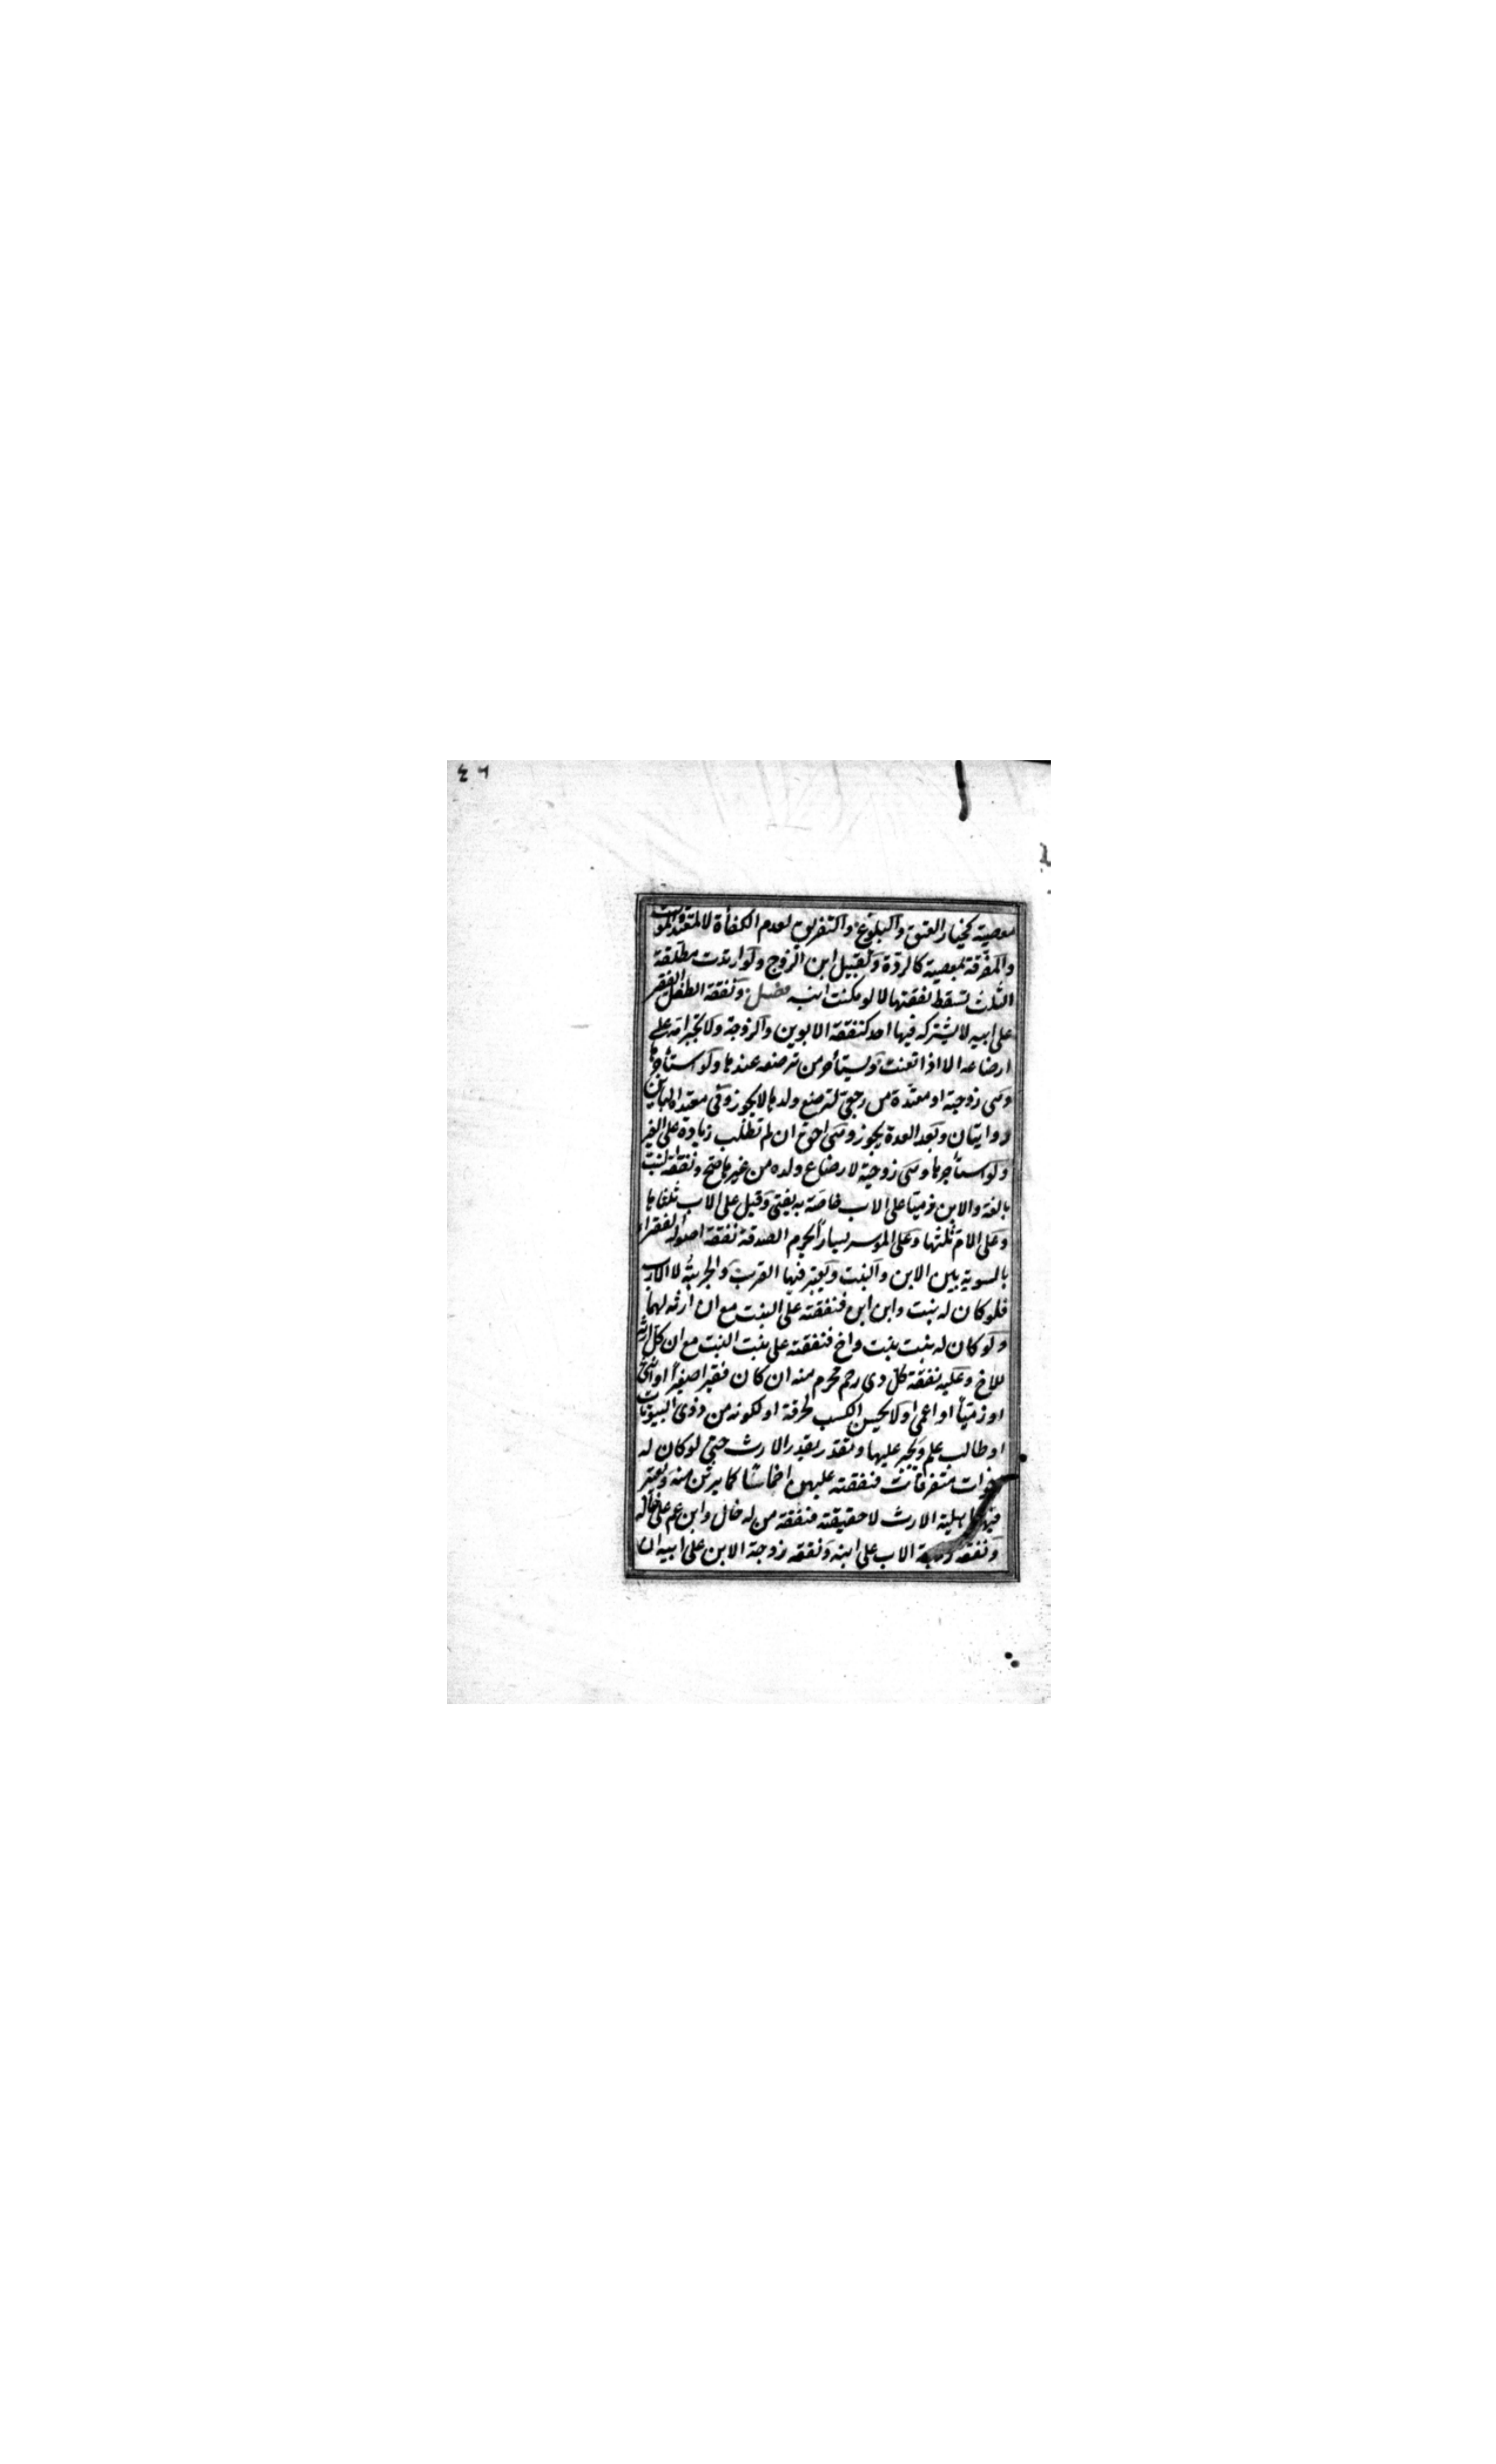 ٤٦
معصية كخيار العتق والبلوغ والتفريق لعدم الكفأة لا لمعتدة الموت
والمفرّقة بمعصية كالردّة وتقبيل ابن الزوج ولو ارتدت مطلقة
الثلث تسقط نفقتها لا لو مكنت ابنه فصل ونفقة الطفل الفقير
على ابيه لا يشركه فيها احد كنفقة الابوين والزوجة ولا تجبر امه على
ارضاعه الا اذا تعنت ويستأجر من ترضعه عندها ولو استأجرها
وهى زوجية او معتدة من رجعى لترضع ولدها لا يجوز وفى معتدة الباين
روايتان وبعد العدة يجوز وهى احق ان لم تطلب زيادة على الغير
ولو استأجرها وهى زوجية لارضاع ولده من غيرها صح ونفقة البنت
بالغة والابن زمنا على الاب خاصة به يفتى وقيل على الاب ثلثاها
وعلى الام ثلثها وعلى الموسر يسارًا يحرم الصدقة نفقة اصوله الفقراء
بالسوية بين الابن والبنت ويعتبر فيها القرب والجزئية لا الارث
فلو كان له بنت وابن ابن فنفقته على البنت مع ان ارثه لهما
ولو كان له بنت بنت واخ فنفقته على بنت البنت مع ان كل ارثه
للاخ وعليه نفقة كل ذى رحم محرم منه ان كان فقيرا صغيرًا او انثى
او زمنًا او اعمى او لا يحسن الكسب لخرقه او لكونه من ذوى البيوتات
او طالب علم ويجبر عليها وتقدر بقدر الارث حتى لو كان له
اخوات متفرقات فنفقته عليهن اخماسًا كما يرثن منه ويعتبر
فيها اهلية الارث لا حقيقته فنفقة من له خال وابن عم على خاله
ونفقة زوجة الاب على ابنه ونفقة زوجة الابن على ابيه ان